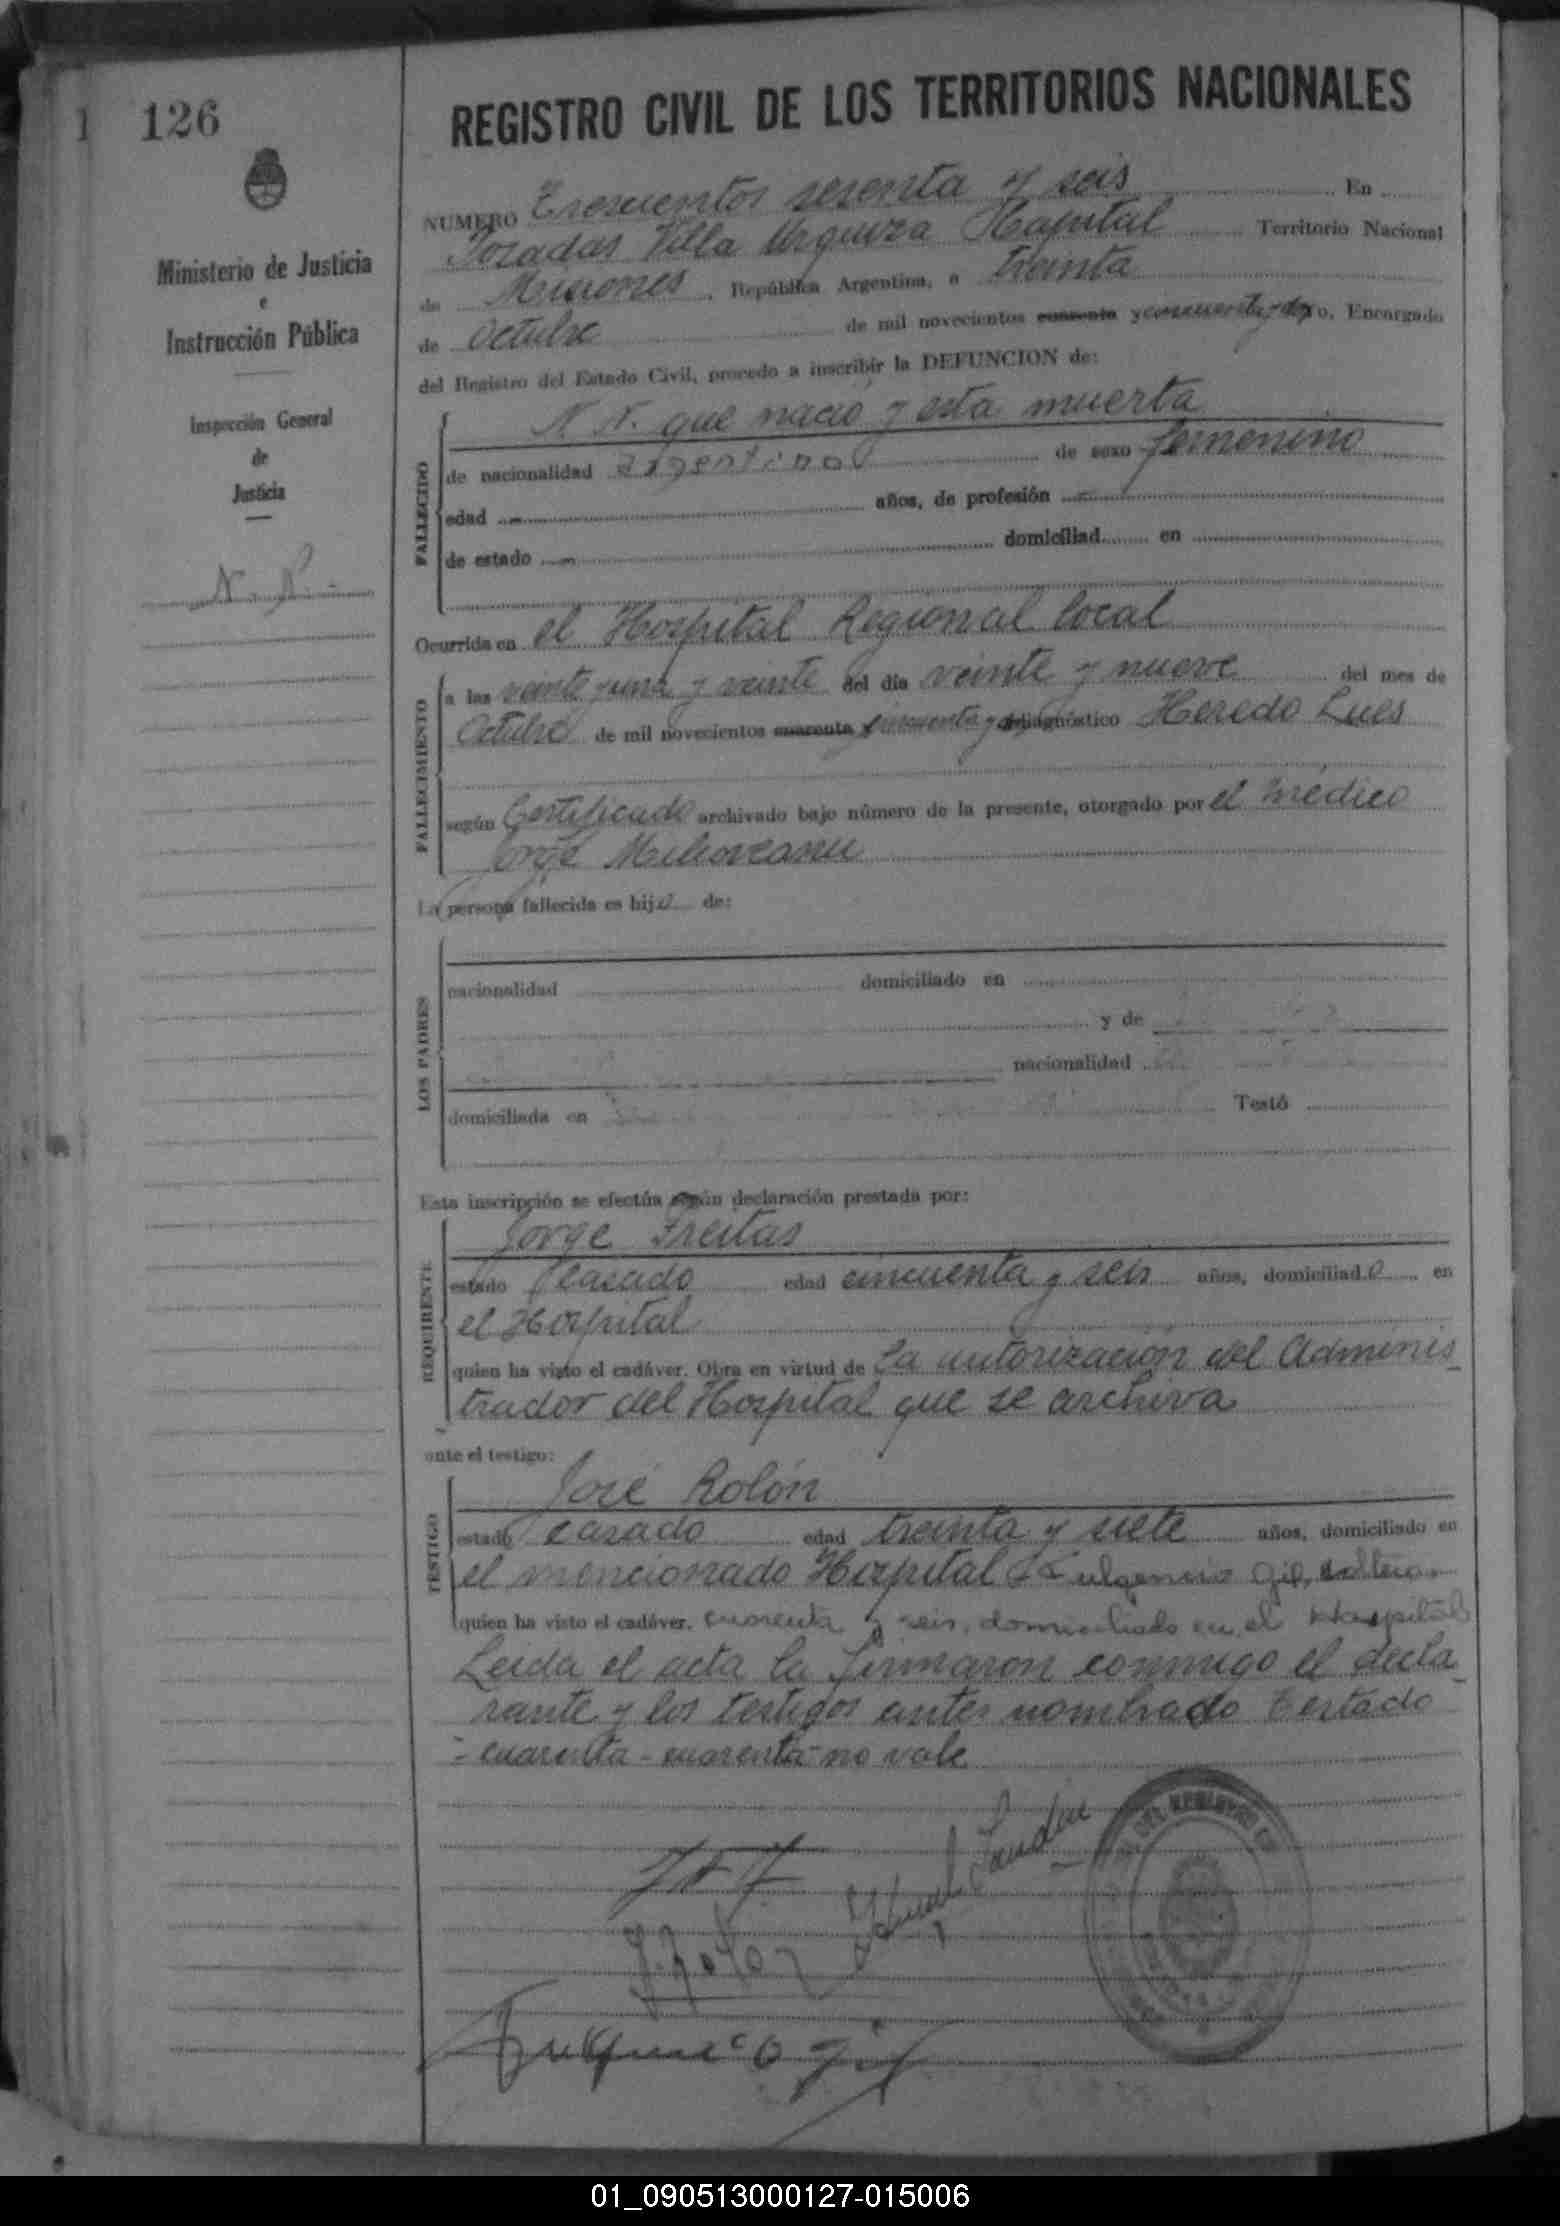 126
REGISTRO CIVIL DE LOS TERRITORIOS NACIONALES
Ministerio de Justicia
e
Instrucción Pública
Inspección General
de
Justicia
N. N.
NUMERO Trescientos sesenta y seis En
Posadas Villa Urquiza Hospital Territorio Nacional
de Misiones, República Argentina, a treinta
de Octubre de mil novecientos cuarenta y cincuenta y dos yo, Encargado
del Registro del Estado Civil, procedo a inscribir la DEFUNCION de:
FALLECIDO
N. N. que nació y esta muerta
de nacionalidad argentina de sexo femenino
edad años, de profesión
de estado domiciliad en
Ocurrida en el Hospital Regional local
FALLECIMIENTO
a las veinte y una y veinte del día veinte y nueve del mes de
Octubre de mil novecientos cuarenta y cincuenta y diagnóstico Heredo Lues
según Certificado archivado bajo número de la presente, otorgado por el médico
Jorge
La persona fallecida es hija de:
LOS PADRES
nacionalidad domiciliado en
y de
nacionalidad
domiciliada en Testó
Esta inscripción se efectúa según declaración prestada por:
REQUIRENTE
Jorge Freitas
estado casado edad cincuenta y seis años, domiciliado en
el Hospital
quien ha visto el cadáver. Obra en virtud de la autorización del Adminis
trador del Hospital que se archiva
ante el testigo:
TESTIGO
José Rolón
estado casado edad treinta y siete años, domiciliado en
el mencionado Hospital Fulgencio Gil, soltero
quien ha visto el cadáver. cuarenta y seis, domiciliado en el Hospital
Leida el acta la firmaron conmigo el decla
rante y los testigos antes nombrado Testado
- cuarenta - cuarenta - no vale
J. Rolon
Fulgencio Gil
01_090513000127-015006